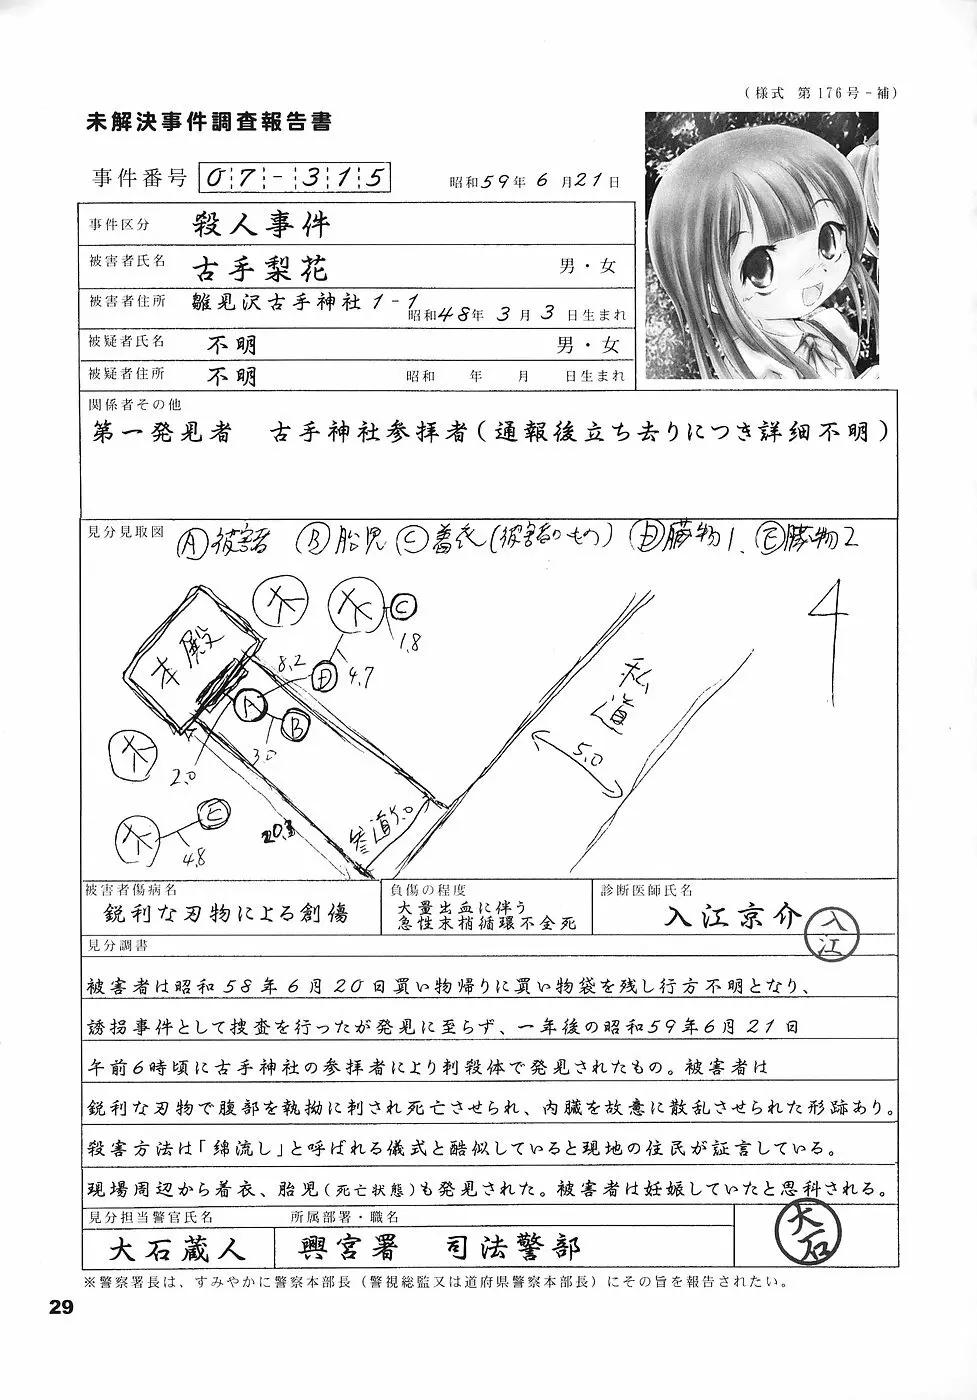 (様式 第176号-補)
未解決事件調査報告書
事件番号 07-315
昭和59年 6月21日
事件区分 殺人事件
被害者氏名 古手梨花 男・女
被害者住所 雛見沢古手神社1-1 昭和48年 3月 3日生まれ
被疑者氏名 不明 男・女
被疑者住所 不明 昭和 年 月 日生まれ
関係者その他
第一発見者 古手神社参拝者(通報後立ち去りにつき詳細不明)
見分見取図 Ⓐ被害者 Ⓑ胎児 Ⓒ着衣(被害者のもの) Ⓓ臓物1、Ⓔ臓物2
木
木
C
1.8
4
本殿
8.2
D
4.7
A
B
私道
3.0
5.0
木
2.0
木
E
4.8
20.3
参道5.0
被害者傷病名
鋭利な刃物による創傷
負傷の程度
大量出血に伴う
急性末梢循環不全死
診断医師氏名
入江京介
入江
見分調書
被害者は昭和58年6月20日買い物帰りに買い物袋を残し行方不明となり、
誘拐事件として捜査を行ったが発見に至らず、一年後の昭和59年6月21日
午前6時頃に古手神社の参拝者により刺殺体で発見されたもの。被害者は
鋭利な刃物で腹部を執拗に刺され死亡させられ、内臓を故意に散乱させられた形跡あり。
殺害方法は「綿流し」と呼ばれる儀式と酷似していると現地の住民が証言している。
現場周辺から着衣、胎児(死亡状態)も発見された。被害者は妊娠していたと思科される。
見分担当警官氏名
大石蔵人
所属部署・職名
興宮署 司法警部
大石
※警察署長は、すみやかに警察本部長(警視総監又は道府県警察本部長)にその旨を報告されたい。
29